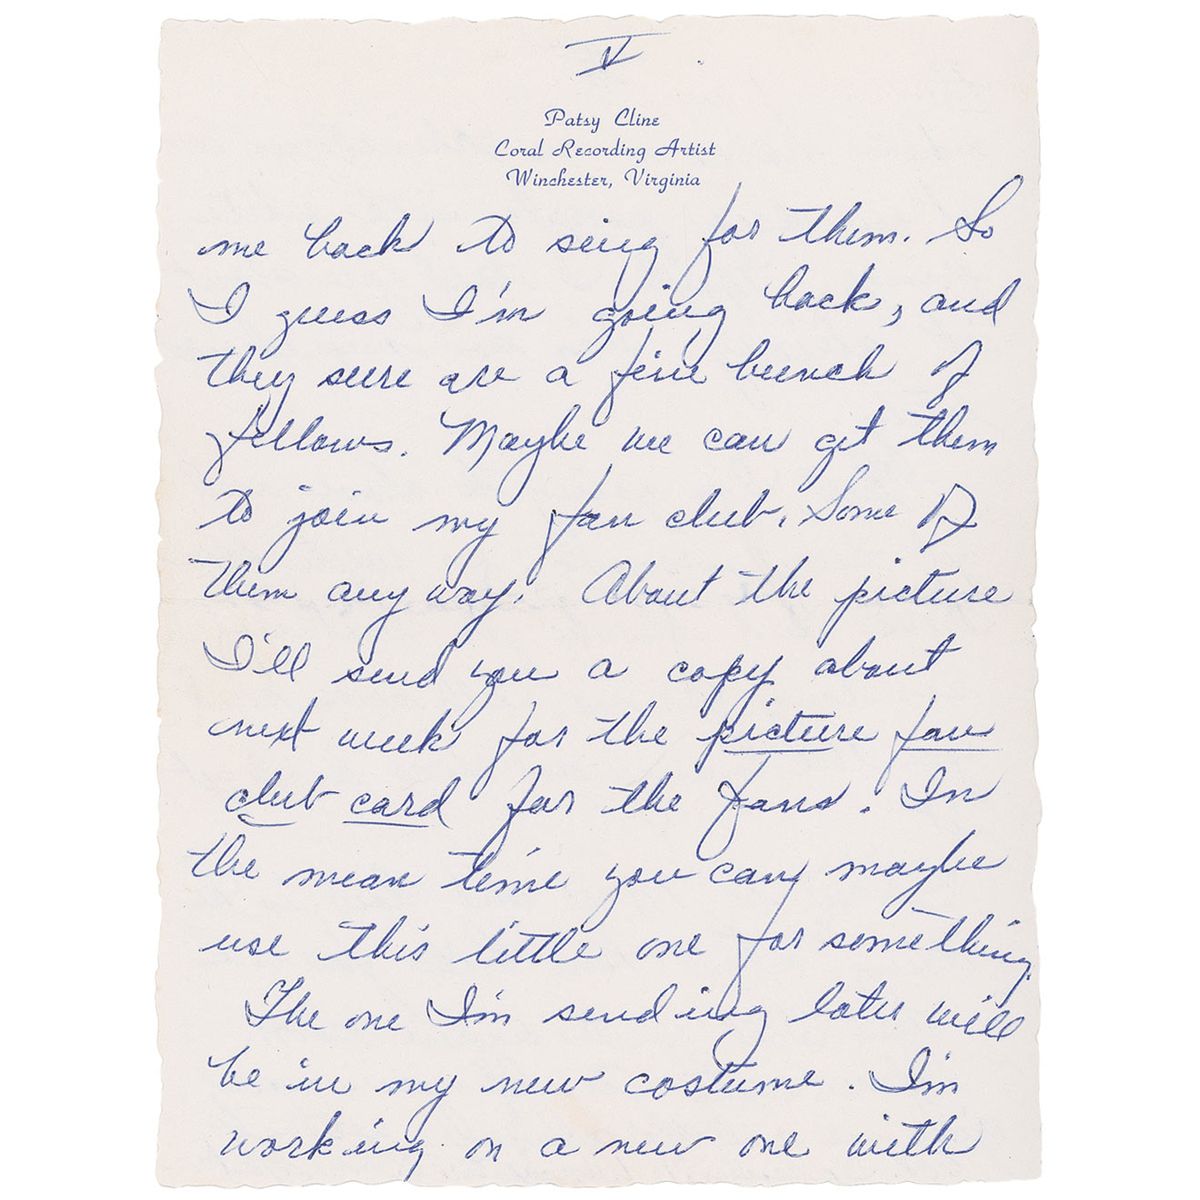 V
Patsy Cline
Coral Recording Artist
Winchester, Virginia
me back to sing for them. So
I guess I'm going back, and
they sure are a fine bunch of
fellows. Maybe we can get them
to join my fan club, Some of
them any way. About the picture
I'll send you a copy about
next week for the picture fan
club card for the fans. In
the mean time you can maybe
use this little one for something.
The one I'm sending later will
be in my new costume. I'm
working on a new one with